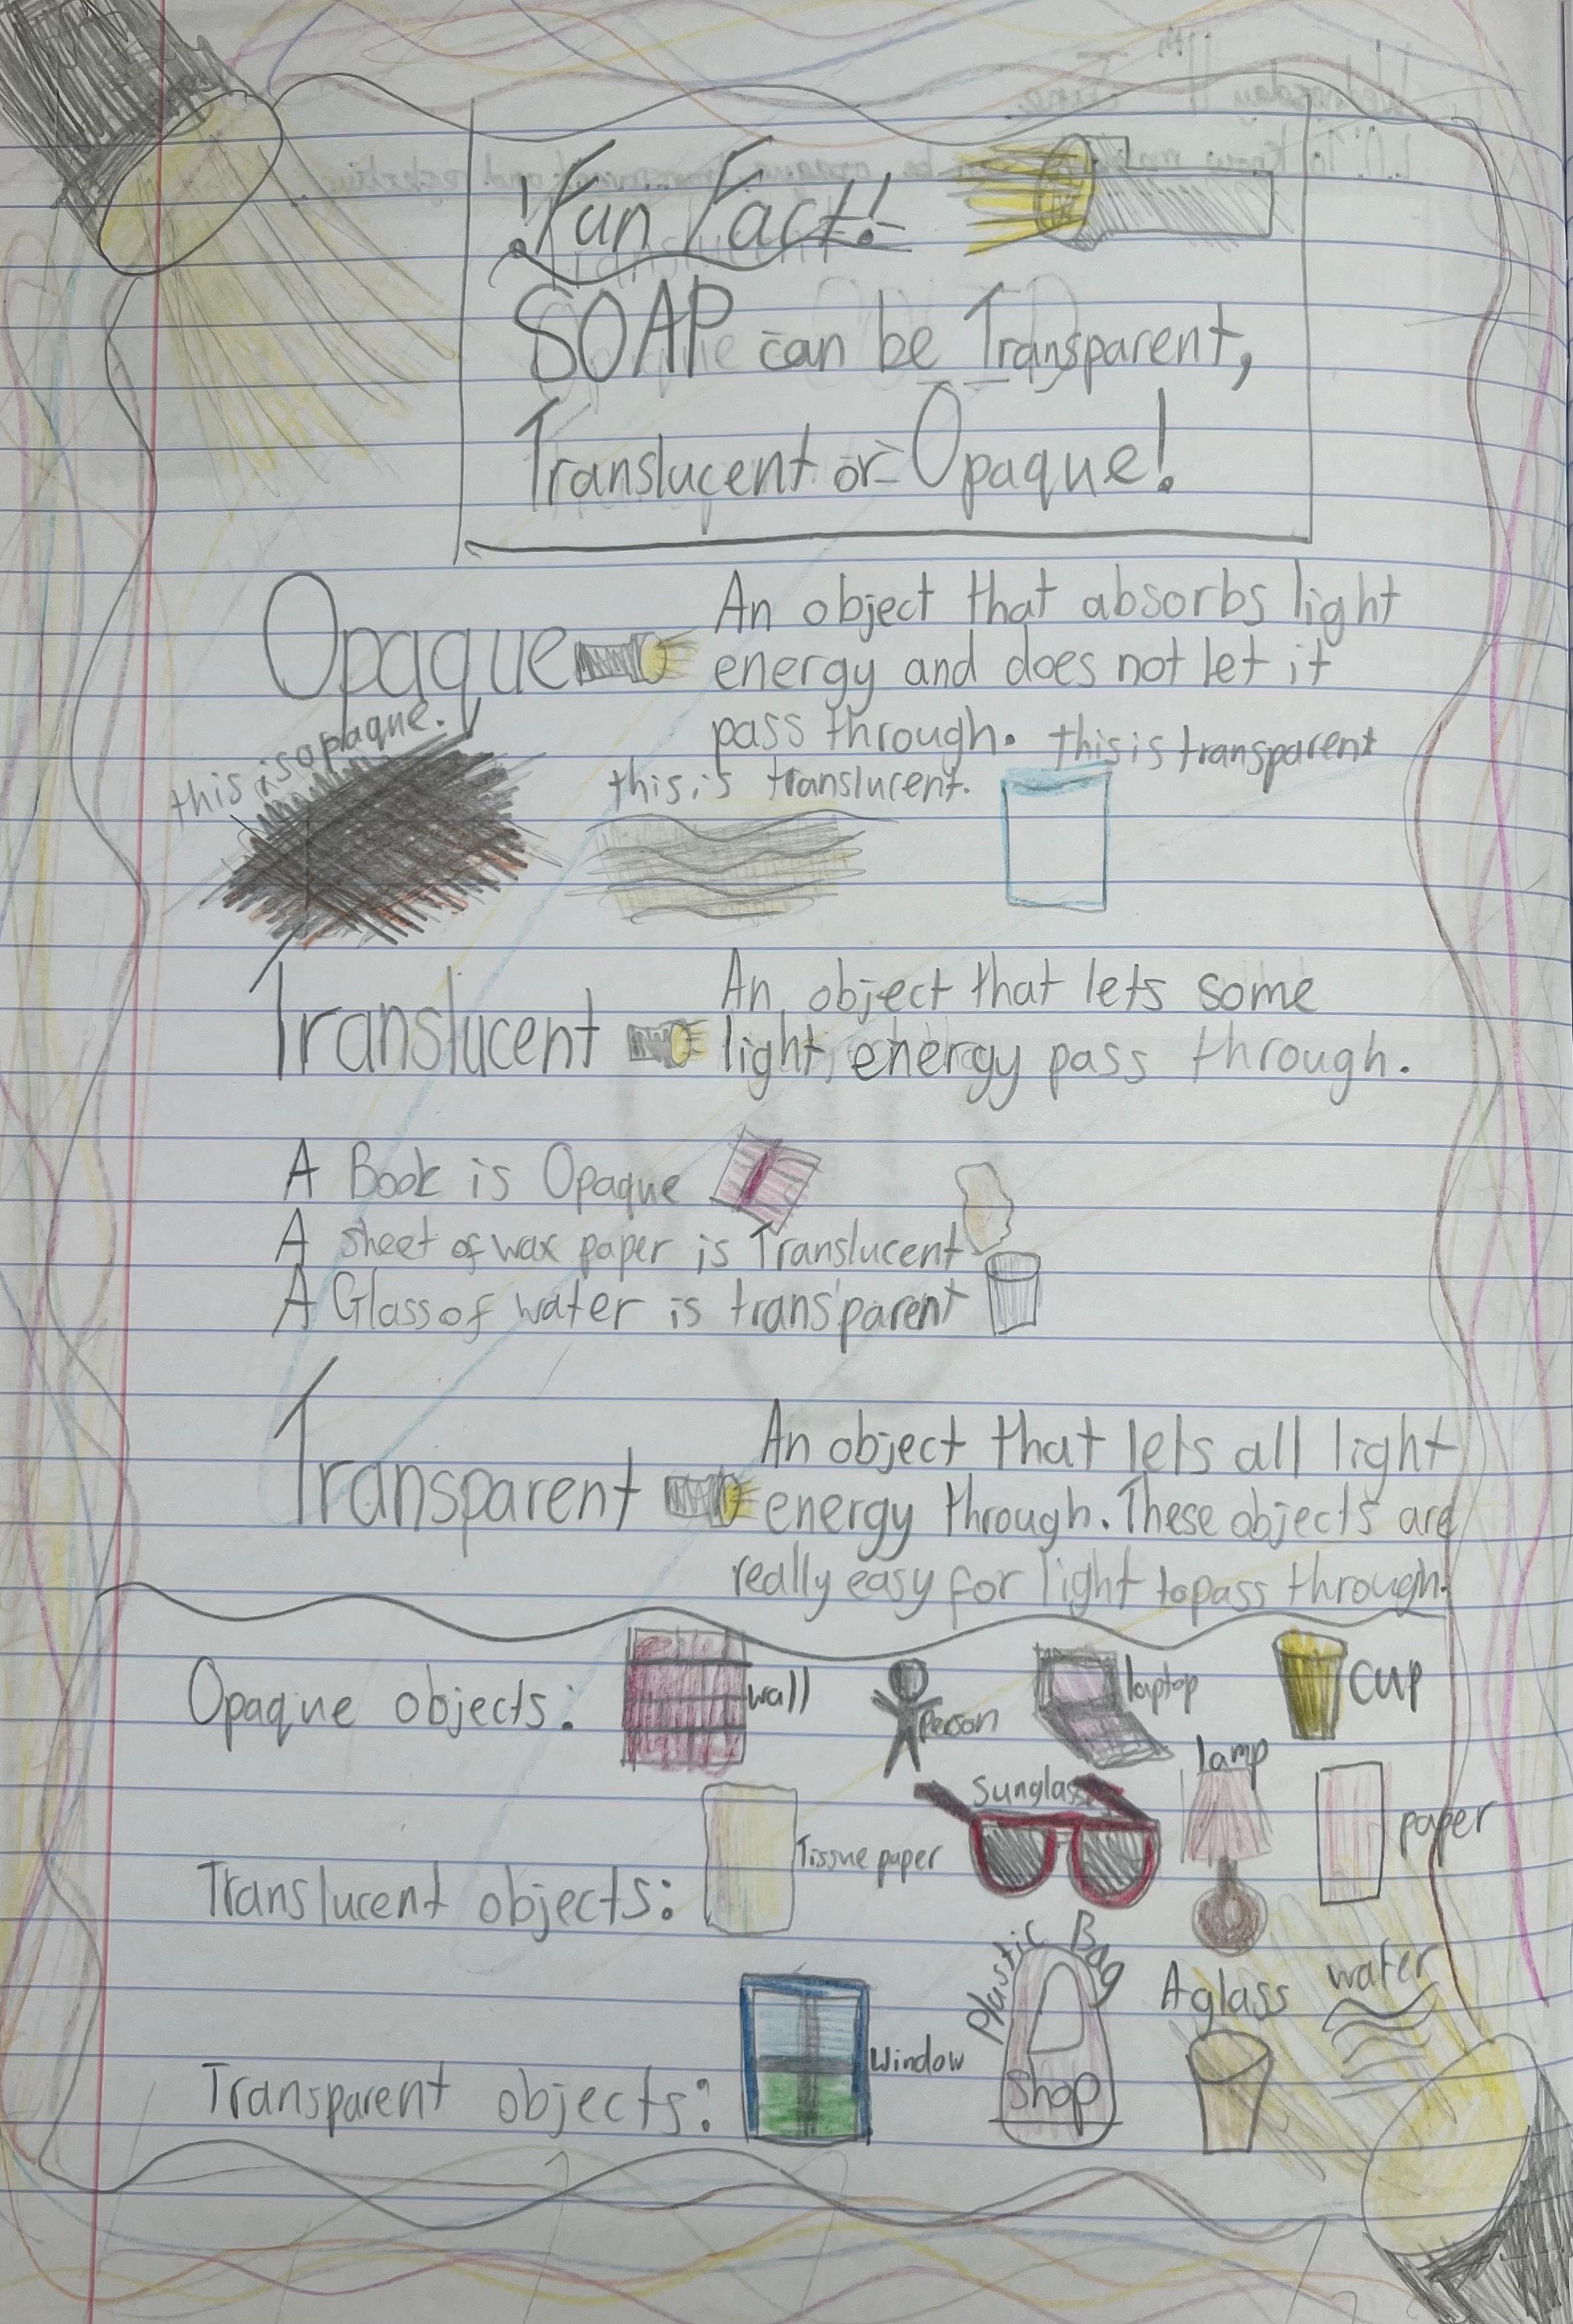 !Fun Fact!
SOAP can be Transparent,
Translucent or Opaque!
Opaque
An object that absorbs light
energy and does not let it
pass through.
this is opaque.
this is translucent.
this is transparent
Translucent
An object that lets some
light energy pass through.
A Book is Opaque
A sheet of wax paper is Translucent
A Glass of water is transparent
Transparent
An object that lets all light
energy through. These objects are
really easy for light to pass through.
Opaque objects:
wall
person
laptop
cup
Translucent objects:
Tissue paper
Sunglasses
lamp
paper
Transparent objects:
Window
Plastic Bag
Shop
A glass
water